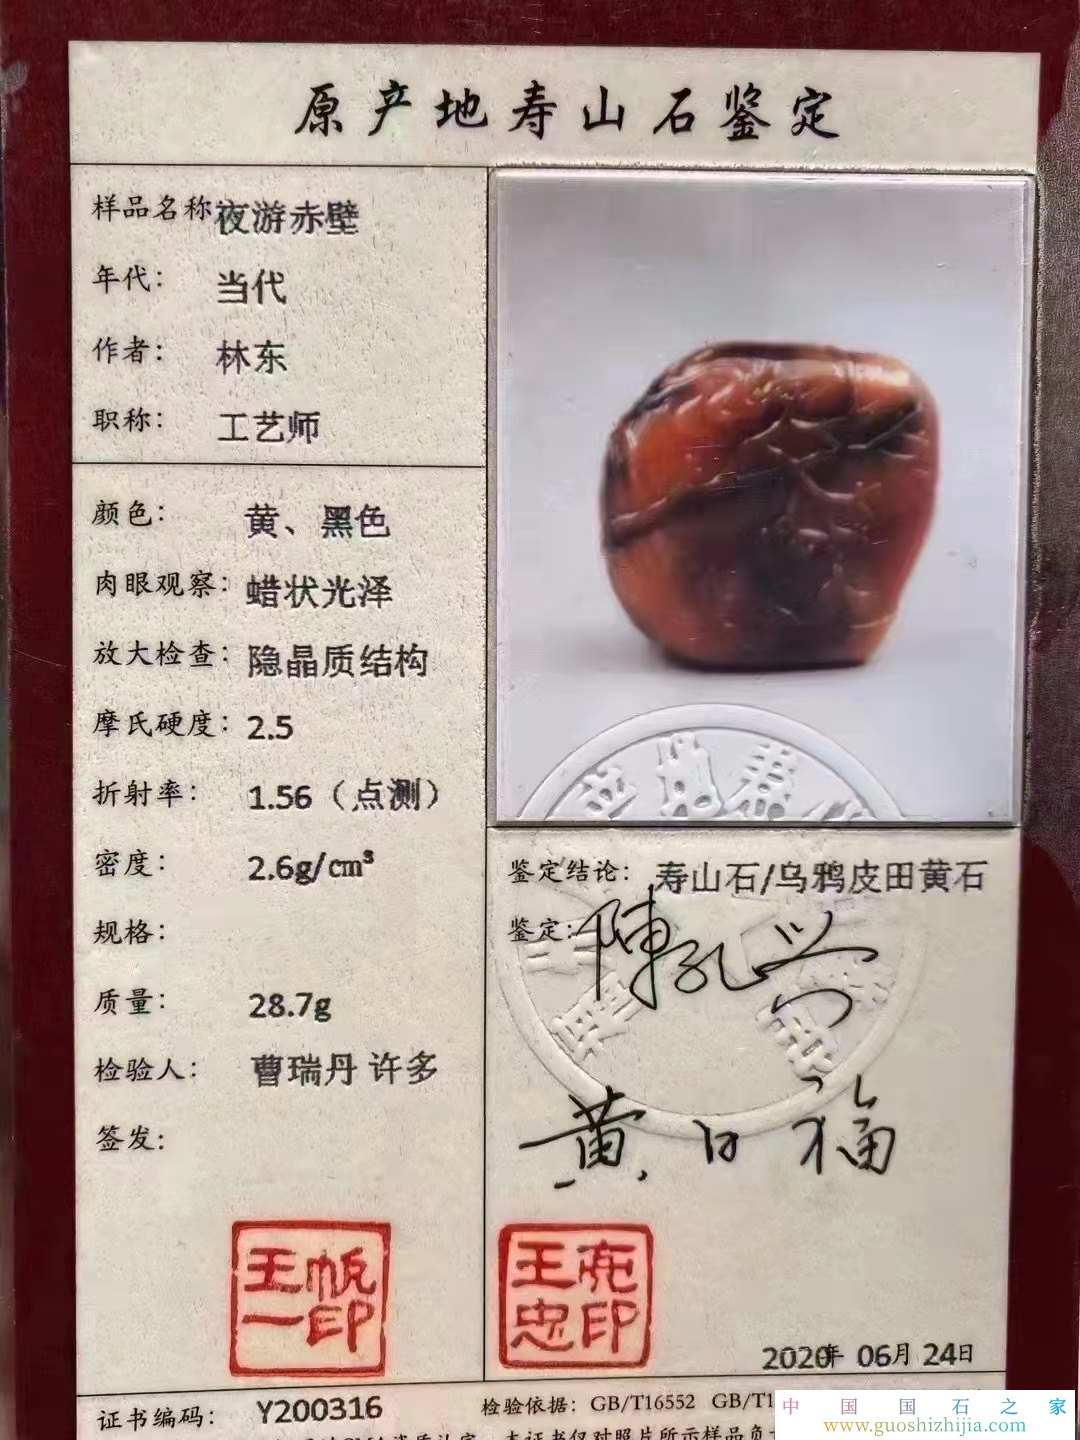 原产地寿山石鉴定
样品名称 夜游赤壁
年代： 当代
作者： 林东
职称： 工艺师
颜色： 黄、黑色
肉眼观察： 蜡状光泽
放大检查： 隐晶质结构
摩氏硬度： 2.5
折射率： 1.56（点测）
密度： 2.6g/cm³
规格：
质量： 28.7g
检验人： 曹瑞丹 许多
签发：
鉴定结论： 寿山石/乌鸦皮田黄石
鉴定：
黄日福
王帆
一印
王亮
忠印
2020年 06月 24日
证书编码： Y200316
检验依据：GB/T16552 GB/T1
本证书仅对照片所示样品负
中国国石之家
www.guoshizhijia.com